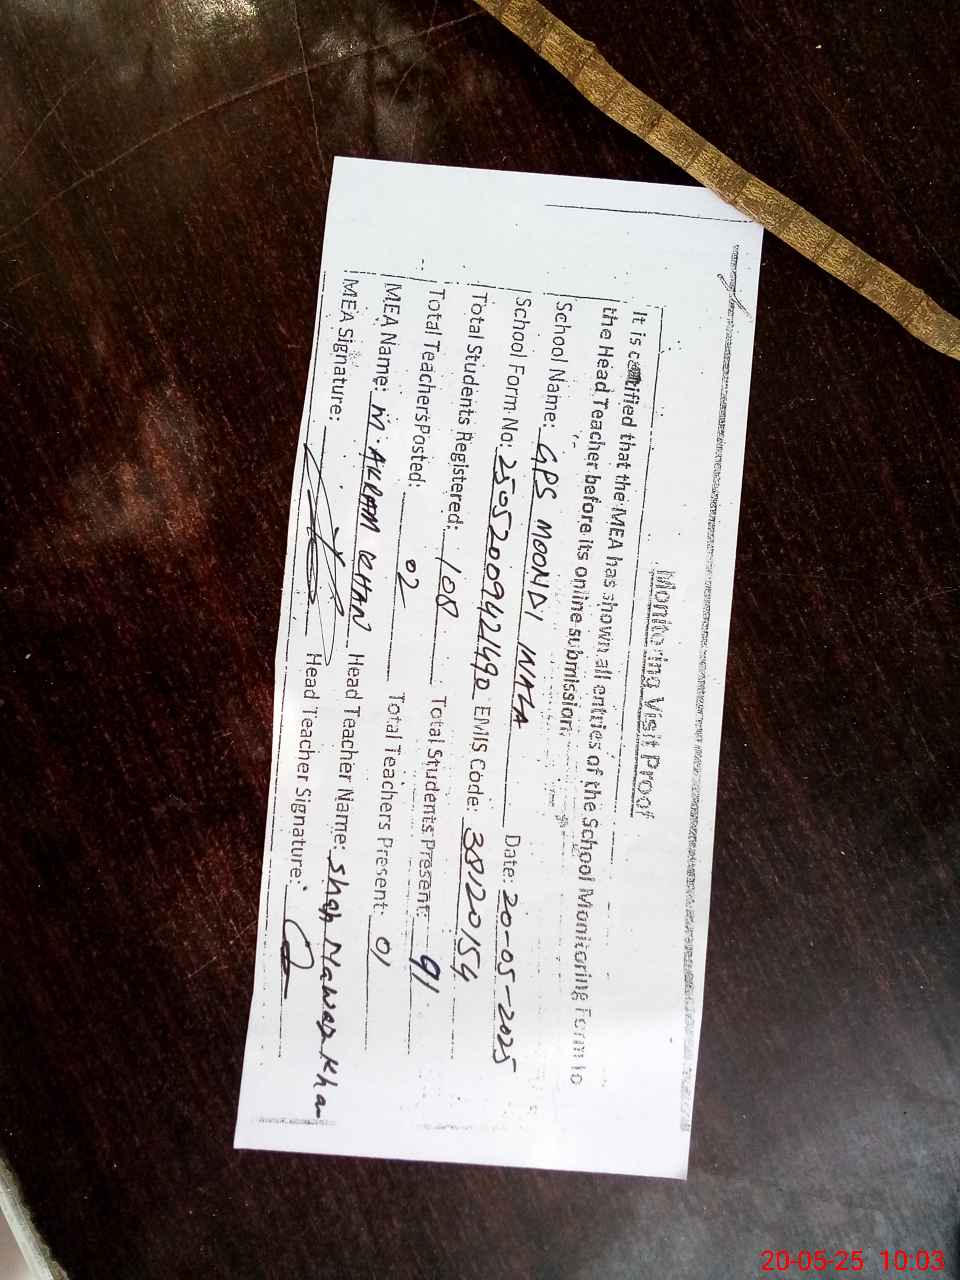 Monitoring Visit Proof
It is certified that the MEA has shown all entries of the School Monitoring Form to
the Head Teacher before its online submission.
School Name: GPS MOONDI WALA Date: 20-05-2025
School Form No: 25052009421490 EMIS Code: 38120154
Total Students Registered: 108 Total Students Present: 91
Total Teachers Posted: 02 Total Teachers Present: 01
MEA Name: M. AKRAM KHAN Head Teacher Name: Shah Nawaz Kha
MEA Signature: Head Teacher Signature:
20-05-25 10:03